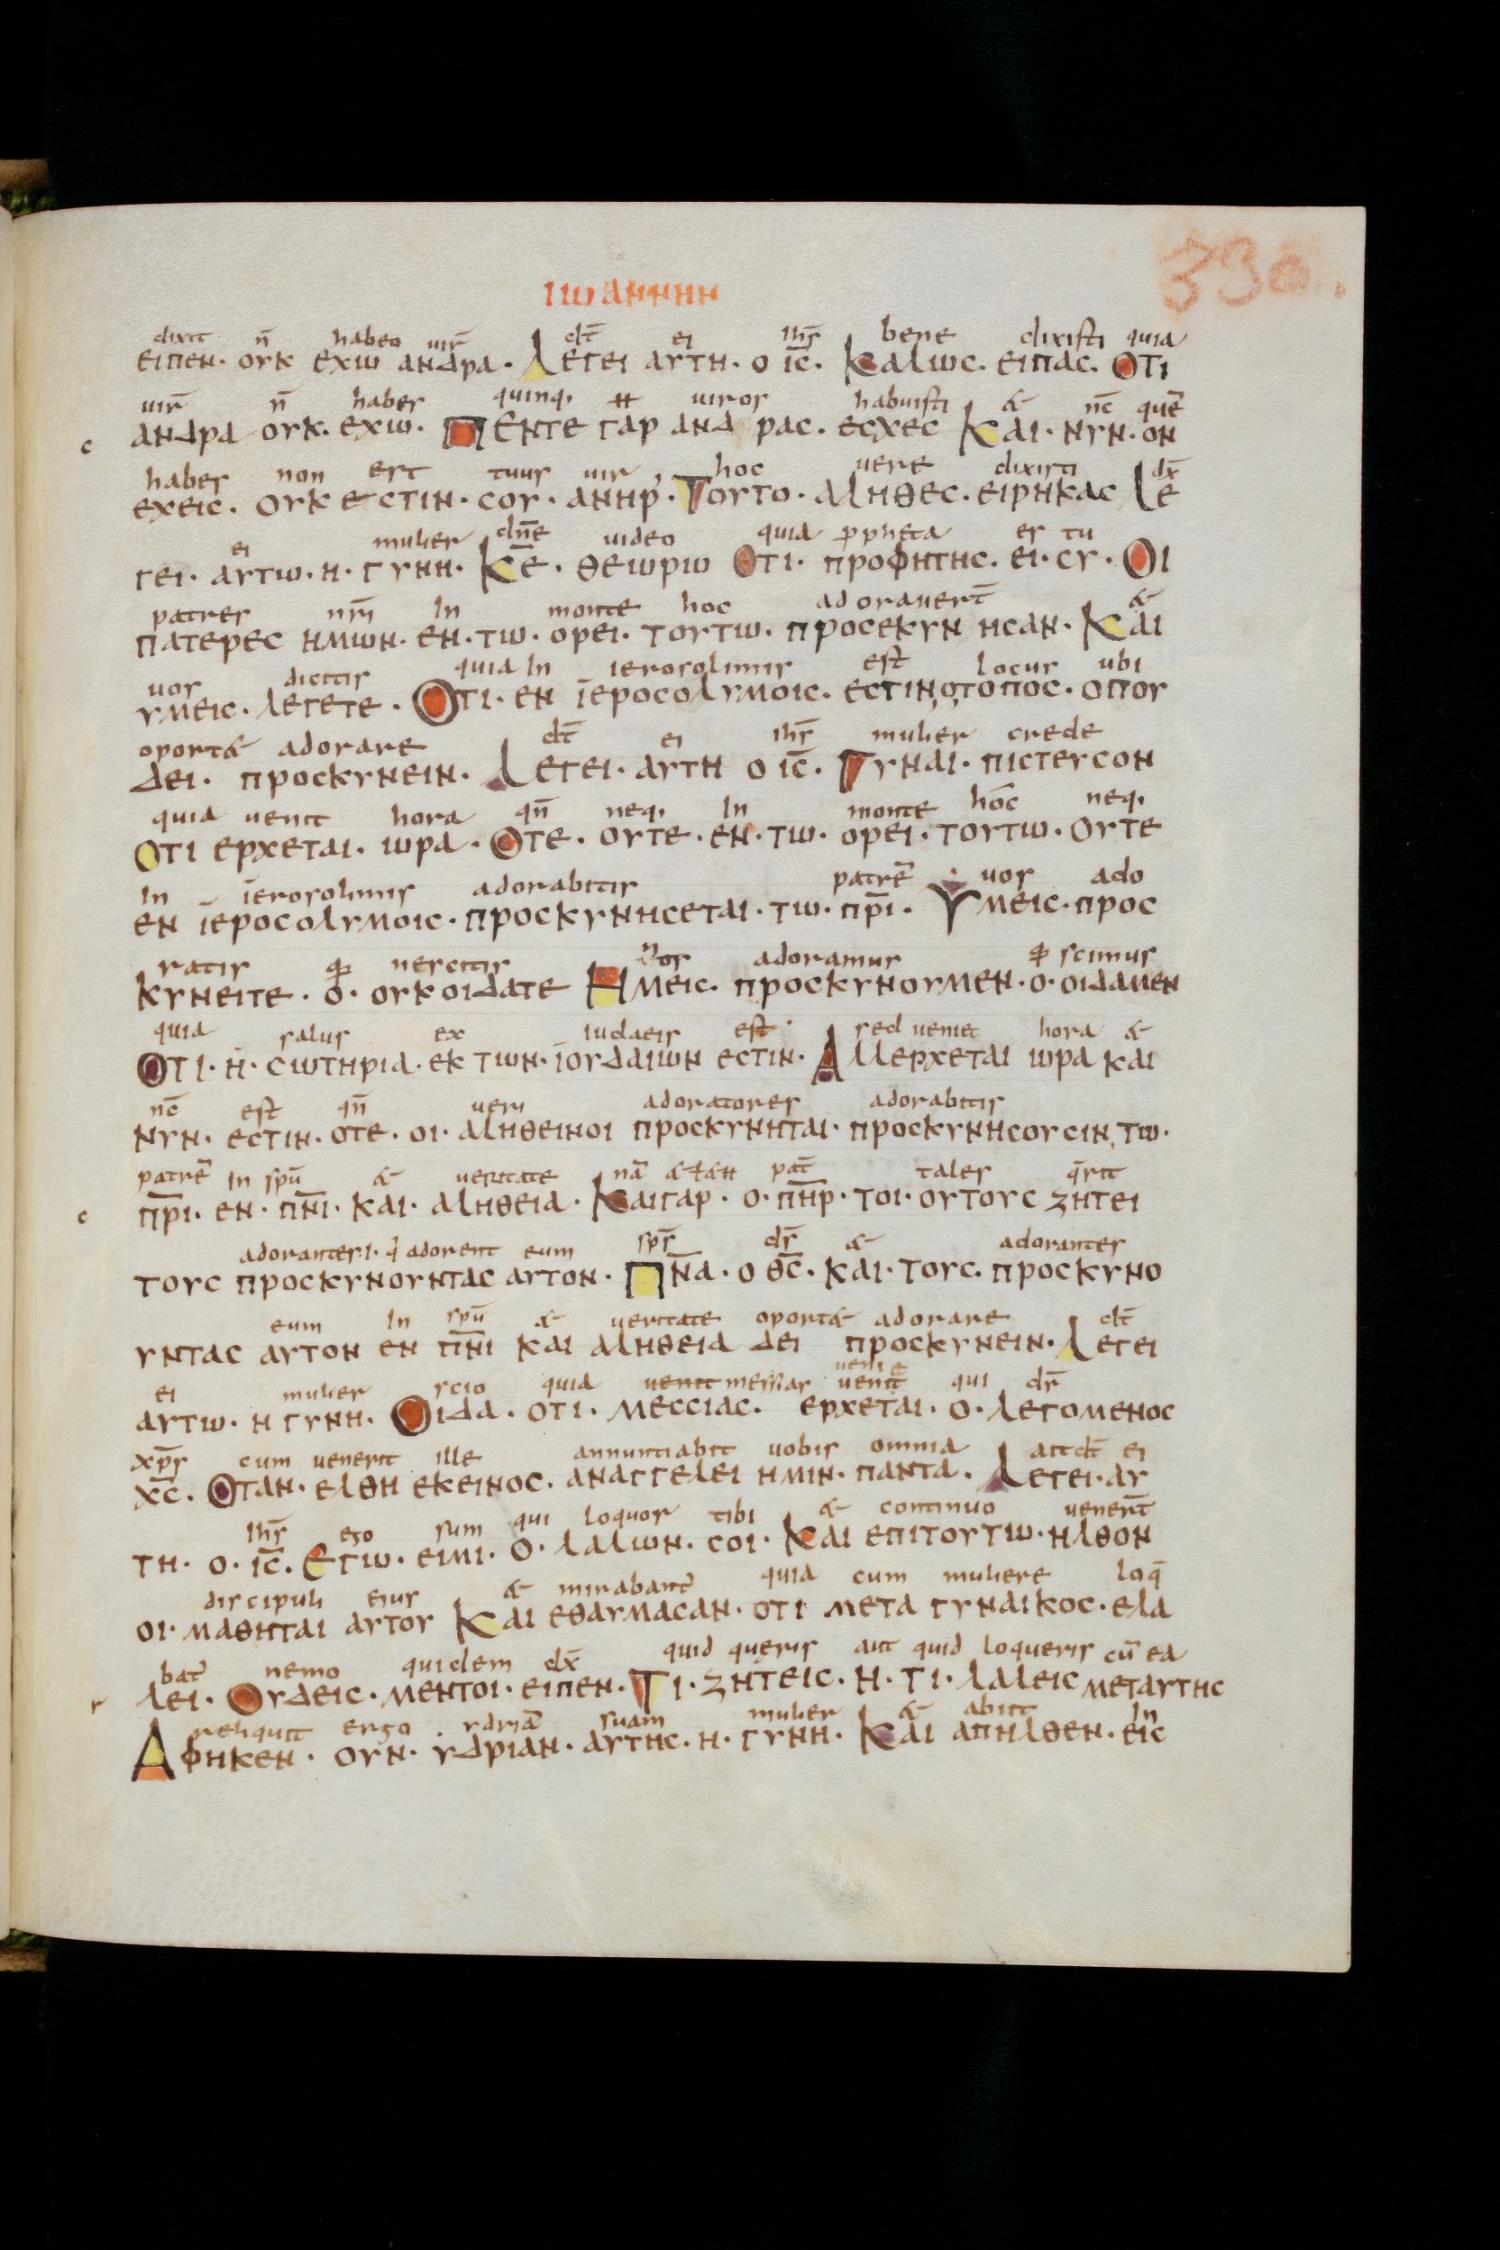 ΙΩΑΝΝΗΝ
330.
dixit n̄ habeo uir̄ dt̄ ei ihs̄ bene dixisti quia
ΕΙΠΕΝ· ΟΥΚ ΕΧΙΩ ΑΝΔΡΑ· ΛΕΓΕΙ ΑΥΤΗ· Ο ΙC̄· ΚΑΛΩC· ΕΙΠΑC· ΟΤΙ
uir̄ n̄ habes quinq; ʜ uiros habuisti & nc̄ quē
c ΑΝΔΡΑ ΟΥΚ· ΕΧΙΩ· ΠΕΝΤΕ ΓΑΡ ΑΝΔ ΡΑC· ΕCΧΕC ΚΑΙ· ΝΥΝ· ΟΝ
habes non est tuus uir hoc uere dixisti dx̄
ΕΧΕΙC· ΟΥΚ ΕCΤΙΝ· CΟΥ· ΑΝΗΡ· ΤΟΥΤΟ· ΑΛΗΘΕC· ΕΙΡΗΚΑC ΛΕ
ei mulier dn̄e uideo quia ꝓpheta es tu
ΓΕΙ· ΑΥΤΩ· Η· ΓΥΝΗ· ΚΕ̄· ΘΕΙΩΡΙΩ ΟΤΙ· ΠΡΟΦΗΤΗC· ΕΙ· CΥ· ΟΙ
patres nr̄i In monte hoc adorauert̄ &
ΠΑΤΕΡΕC ΗΜΙΩΝ· ΕΝ· ΤΩ· ΟΡΕΙ· ΤΟΥΤΩ· ΠΡΟCΕΚΥΝ ΗCΑΝ· ΚΑΙ
uos dicitis quia In ierosolimis est locus ubi
ΥΜΕΙC· ΛΕΓΕΤΕ· ΟΤΙ· ΕΝ ΙΕΡΟCΟΛΥΜΟΙC· ΕCΤΙΝ,Ο,ΤΟΠΟC· ΟΠΟΥ
oport& adorare dt̄ ei ihs̄ mulier crede
ΔΕΙ· ΠΡΟCΚΥΝΕΙΝ· ΛΕΓΕΙ· ΑΥΤΗ Ο ΙC̄· ΓΥΝΑΙ· ΠΙCΤΕΥCΟΝ
quia uenit hora qn̄ neq; In monte hoc neq;
ΟΤΙ ΕΡΧΕΤΑΙ· ΩΡΑ· ΟΤΕ· ΟΥΤΕ· ΕΝ· ΤΩ· ΟΡΕΙ· ΤΟΥΤΩ· ΟΥΤΕ
In ierosolimis adorabitis patrē uos ado
ΕΝ ΙΕΡΟCΟΛΥΜΟΙC· ΠΡΟCΚΥΝΗCΕΤΑΙ· ΤΩ· ΠΡ̄Ι· ΥΜΕΙC· ΠΡΟC
ratis qđ nescitis Nos adoramus qđ scimus
ΚΥΝΕΙΤΕ· Ο· ΟΥΚΟΙΔΑΤΕ ΗΜΕΙC· ΠΡΟCΚΥΝΟΥΜΕΝ· Ο· ΟΙΔΑΜΕΝ
quia salus ex iudaeis est sed ueniet hora &
ΟΤΙ· Η· CΙΩΤΗΡΙΑ· ΕΚ ΤΩΝ· ΙΟΥΔΑΙΩΝ ΕCΤΙΝ· ΑΛΛΕΡΧΕΤΑΙ ΩΡΑ ΚΑΙ
nc̄ est qn̄ ueri adoratores adorabitis
ΝΥΝ· ΕCΤΙΝ· ΟΤΕ· ΟΙ· ΑΛΗΘΕΙΝΟΙ ΠΡΟCΚΥΝΗΤΑΙ· ΠΡΟCΚΥΝΗCΟΥCΙΝ,ΤΩ·
patrē In spū & ueritate nā pat̄ tales q̄rit
c ΠΡ̄Ι· ΕΝ· ΠΝ̄Ι· ΚΑΙ· ΑΛΗΘΕΙΑ· ΚΑΙΓΑΡ· Ο· ΠΗ̄Ρ· ΤΟΙ· ΟΥΤΟΥC ΖΗΤΕΙ
adorantes·ł· q̄ adorent eum sps̄ ds̄ & adorantes
ΤΟΥC ΠΡΟCΚΥΝΟΥΝΤΑC ΑΥΤΟΝ· ΠΝ̄Α· Ο ΘC̄· ΚΑΙ· ΤΟΥC· ΠΡΟCΚΥΝΟ
eum In spū & ueritate oport& adorare dt̄
ΥΝΤΑC ΑΥΤΟΝ ΕΝ ΠΝ̄Ι ΚΑΙ ΑΛΗΘΕΙΑ ΔΕΙ ΠΡΟCΚΥΝΕΙΝ· ΛΕΓΕΙ
ei mulier scio quia uenit messias uenit qui ds̄
ΑΥΤΩ· Η ΓΥΝΗ· ΟΙΔΑ· ΟΤΙ· ΜΕCCΙΑC· ΕΡΧΕΤΑΙ· Ο· ΛΕΓΟΜΕΝΟC
xps̄ cum uenerit ille annuntiabit uobis omnia ait dt̄ ei
ΧC̄· ΟΤΑΝ· ΕΛΘΗ ΕΚΕΙΝΟC· ΑΝΑΓΓΕΛΕΙ ΗΜΙΝ· ΠΑΝΤΑ· ΛΕΓΕΙ· ΑΥ
ihs̄ ego sum qui loquor tibi & continuo uenert̄
ΤΗ· Ο· ΙC̄· ΕΓΩ· ΕΙΜΙ· Ο· ΛΑΛΙΩΝ· CΟΙ· ΚΑΙ ΕΠΙΤΟΥΤΩ· ΗΛΘΟΝ
discipuli eius & mirabant̄ quia cum muliere loq̄
ΟΙ· ΜΑΘΗΤΑΙ ΑΥΤΟΥ ΚΑΙ ΕΘΑΥΜΑCΑΝ· ΟΤΙ ΜΕΤΑ ΓΥΝΑΙΚΟC· ΕΛΑ
bat̄ nemo quidem dx̄ quid queris aut quid loqueris cū ea
r ΛΕΙ· ΟΥΔΕΙC· ΜΕΝΤΟΙ· ΕΙΠΕΝ· ΤΙ· ΖΗΤΕΙC· Η· ΤΙ· ΛΑΛΕΙC ΜΕΤΑΥΤΗC
reliquit ergo ydriā suam mulier & abiit In
ΑΦΗΚΕΝ· ΟΥΝ· ΥΔΡΙΑΝ· ΑΥΤΗC· Η· ΓΥΝΗ· ΚΑΙ ΑΠΗΛΘΕΝ· ΕΙC